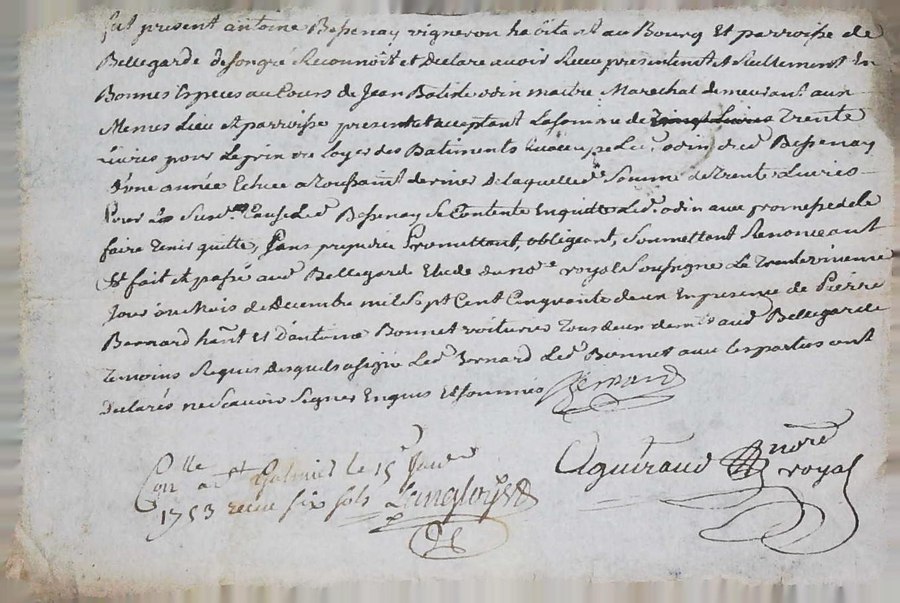 fut present antoine Bessenay vigneron habitant au Bourg Et parroisse de
Bellegarde de son gré Reconnoit et declare avoir Receu presentement et Reellement En
Bonnes Especes au Cours de Jean Batiste odin maitre Marechal demeurant aux
Memes Lieu et parroisse present et acceptant La somme de Trente
Livres pour Le prix de Loyer des Batiments qu'occupe Led. odin dud Bessenay
d'une année Echue a toussaint dernier de laquelle d. somme de trente Livres
Pour La susd. Cause Led Bessenay se Contente En quitte Led. odin aux promesse de le
faire tenir quitte, sans prejudice Promettant, obligeant, soumettant Renonceant
Et fait et passé aud Bellegard Etude du no.e royal soussigne Le trente
Jour du Mois de Decembre mil sept Cent Cinquante deux En presence de Pierre
Bernard hant Et D'antoine Bonnet voiturier tous deux dem.t aud Bellegarde
temoins Requis desquels a signé Led Bernard Led Bonnet avec les parties ont
declarés ne scavoir signer Enquis Et sommés Bernard
Coll.lle a St Galmier le 15 Janv.er
1753 receu six sols Langloys
Aguiraud no.re royal